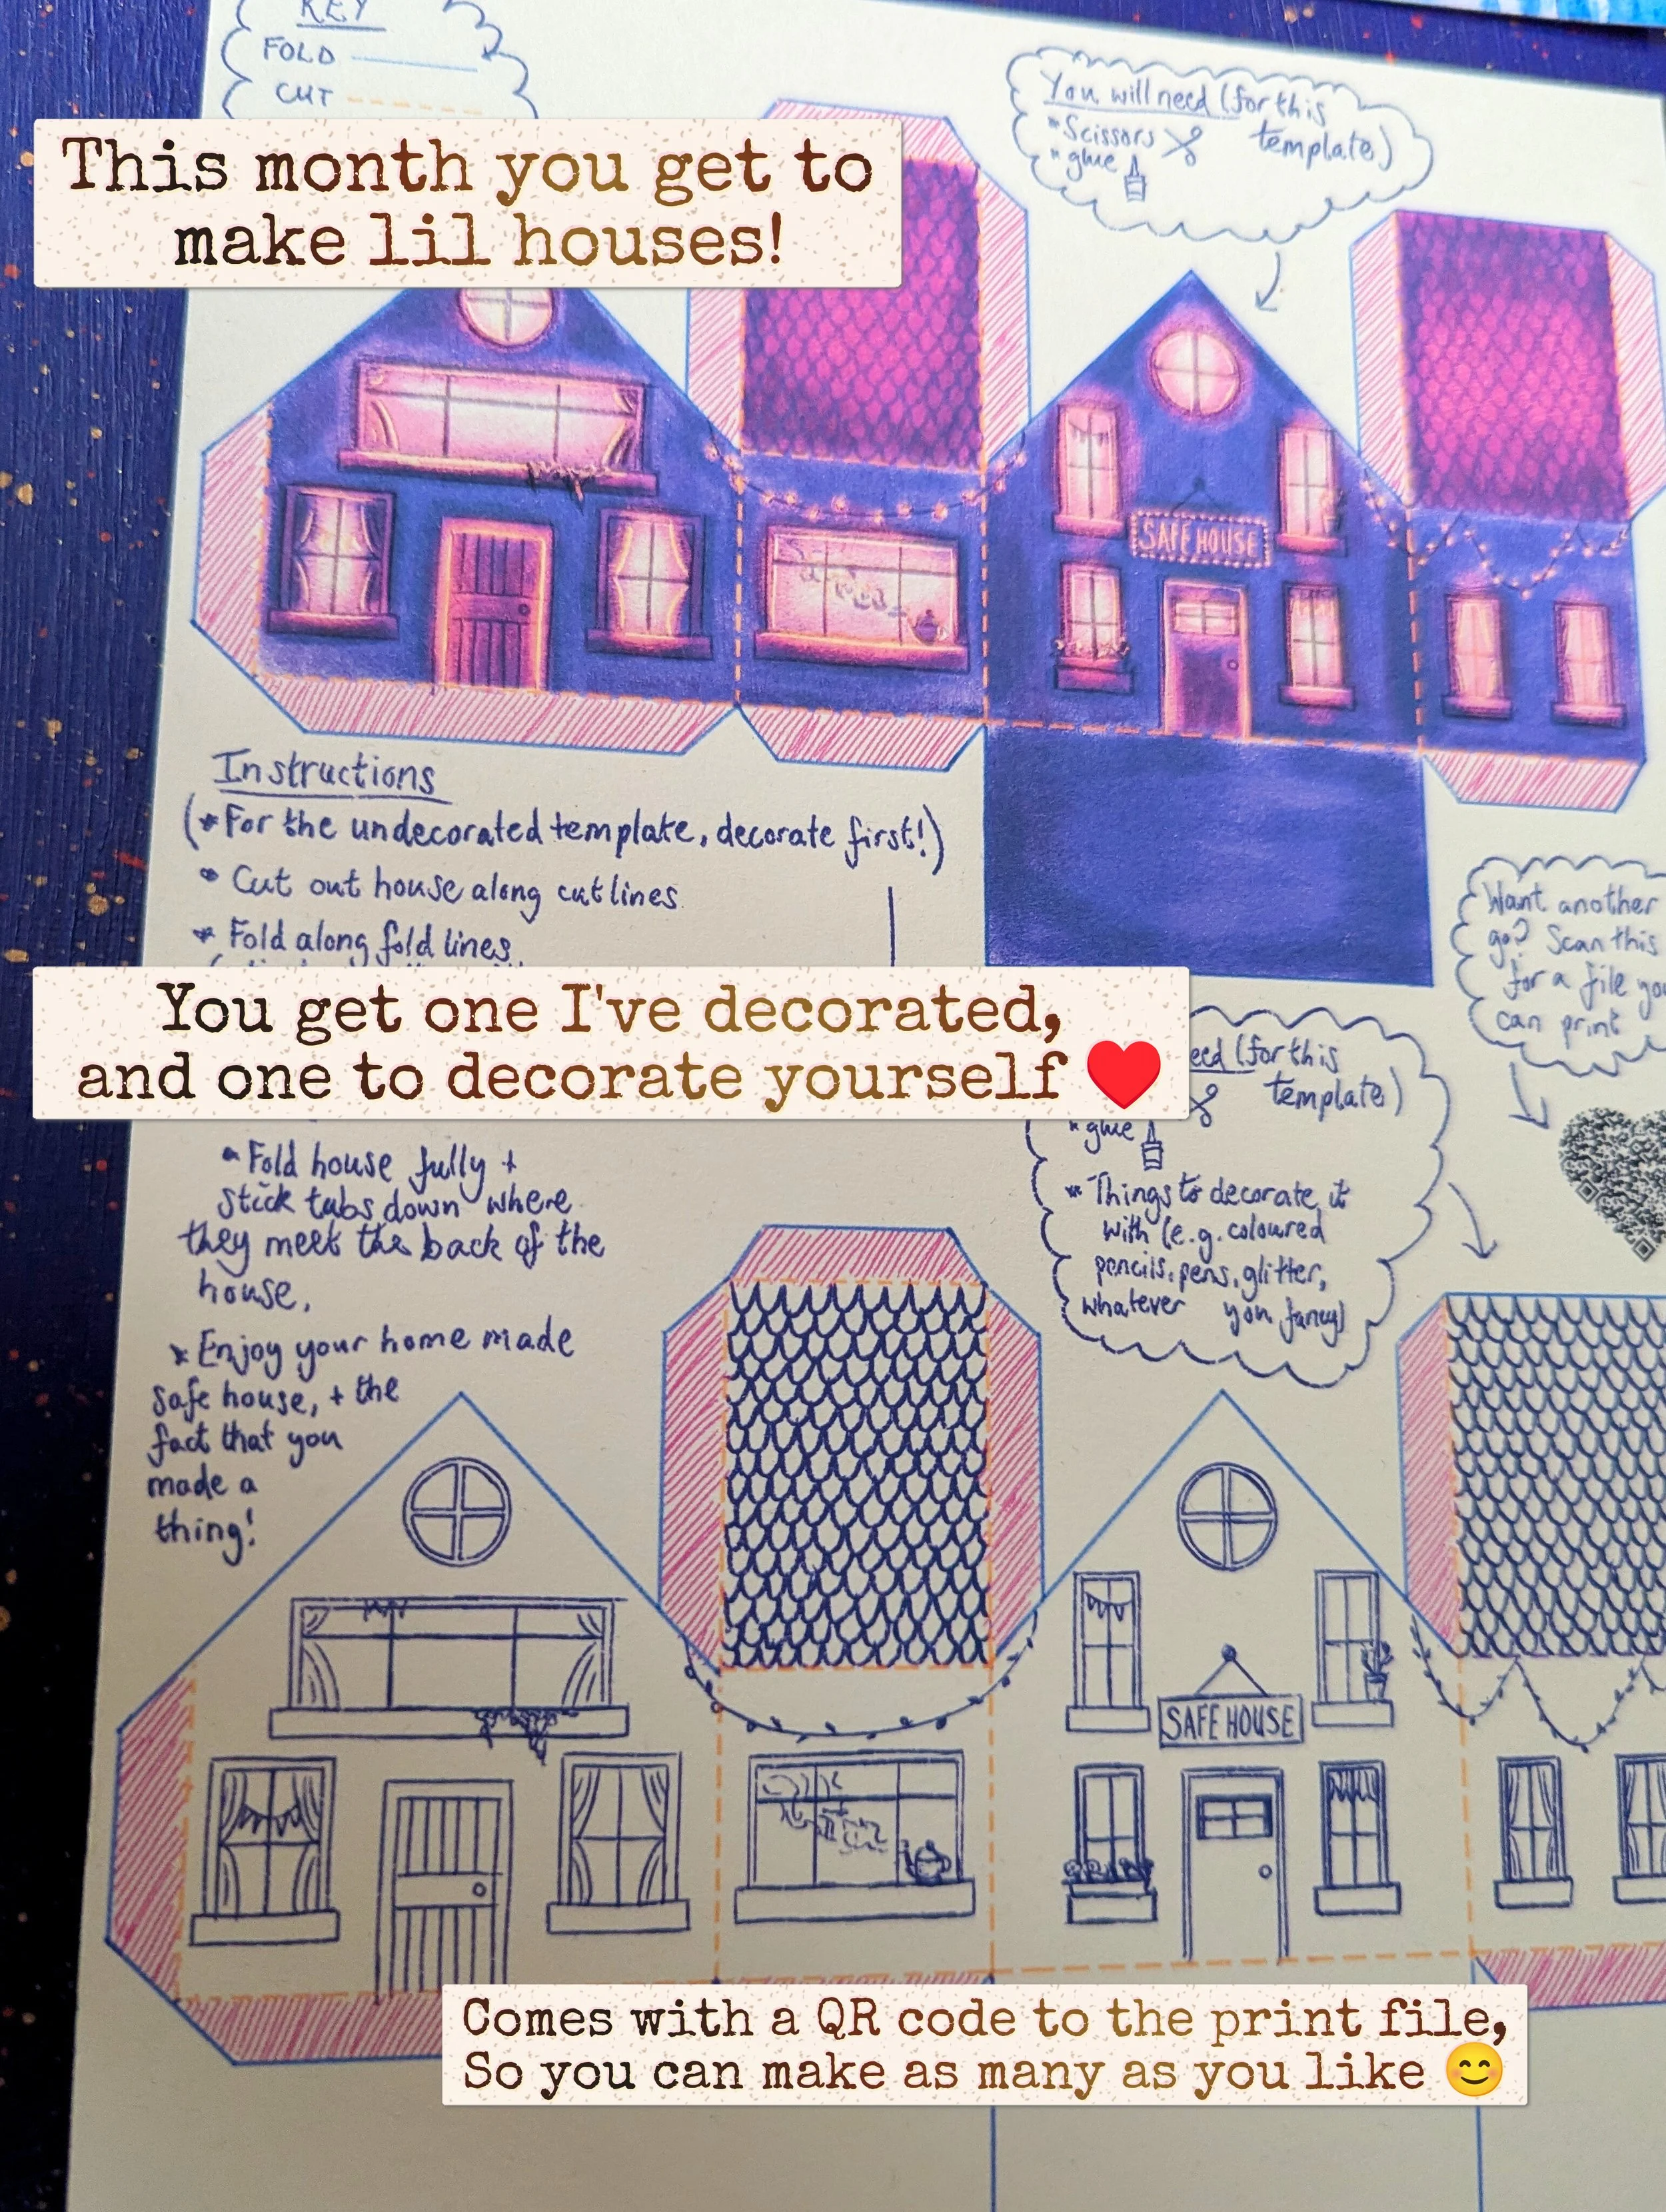 KEY
FOLD
CUT
You will need (for this
template)
*Scissors
*glue
This month you get to
make lil houses!
SAFE HOUSE
Instructions
(*For the undecorated template, decorate first!)
* Cut out house along cut lines.
* Fold along fold lines
Want another
go? Scan this
for a file you
can print
You get one I've decorated,
and one to decorate yourself ❤️
eed (for this
template)
*glue
* Things to decorate it
with (e.g. coloured
pencils, pens, glitter,
whatever you fancy)
* Fold house fully +
stick tabs down where
they meet the back of the
house.
* Enjoy your home made
safe house, + the
fact that you
made a
thing!
SAFE HOUSE
Comes with a QR code to the print file,
So you can make as many as you like 😊